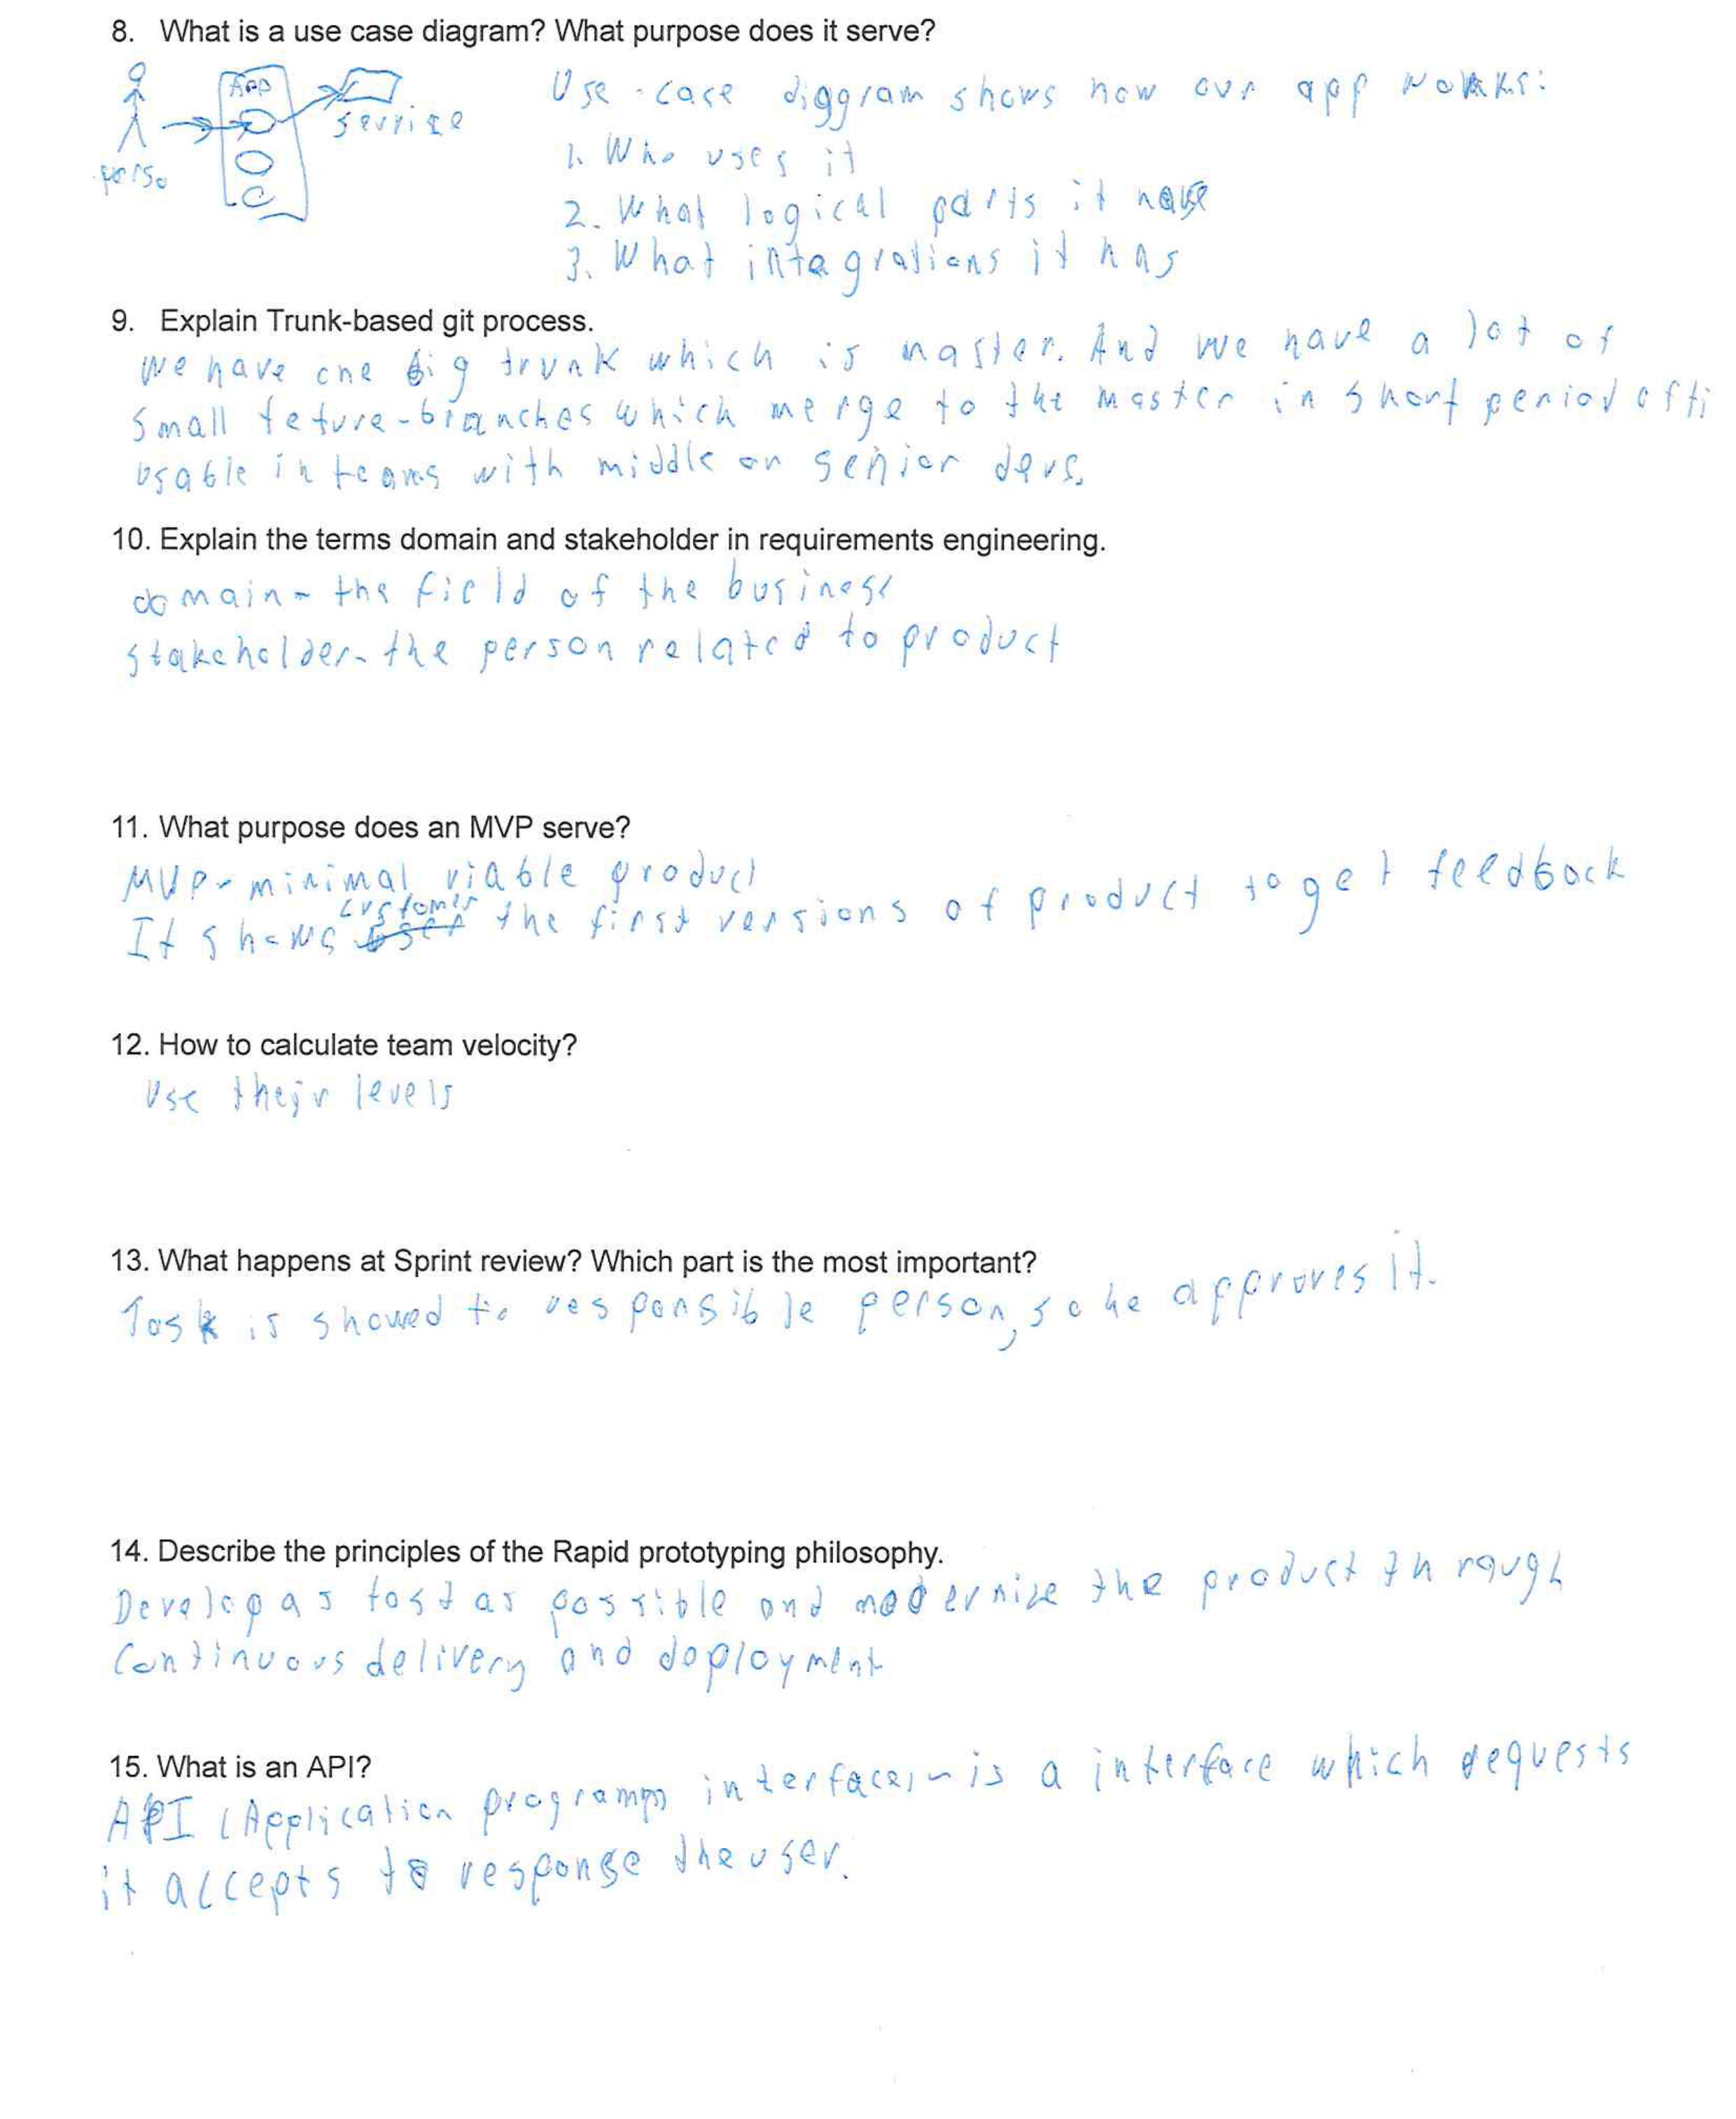 8. What is a use case diagram? What purpose does it serve?
App
service
perso
Use-case diggram shows how our app works:
1. Who uses it
2. What logical parts it have
3. What integrations it has
9. Explain Trunk-based git process.
We have one big trunk which is master. And we have a lot of
small feture-branches which merge to the master in short period of ti
usable in teams with middle or senior devs.
10. Explain the terms domain and stakeholder in requirements engineering.
domain - the field of the business
stakeholder - the person related to product
11. What purpose does an MVP serve?
MVP - minimal viable product
It shows customer the first versions of product to get feedback
12. How to calculate team velocity?
Use their levels
13. What happens at Sprint review? Which part is the most important?
Task is showed to responsible person, so he approves it.
14. Describe the principles of the Rapid prototyping philosophy.
Develop as fast as possible and modernize the product through
continuous delivery and deployment
15. What is an API?
API (Application programm interface) - is a interface which requests
it accepts to response the user.